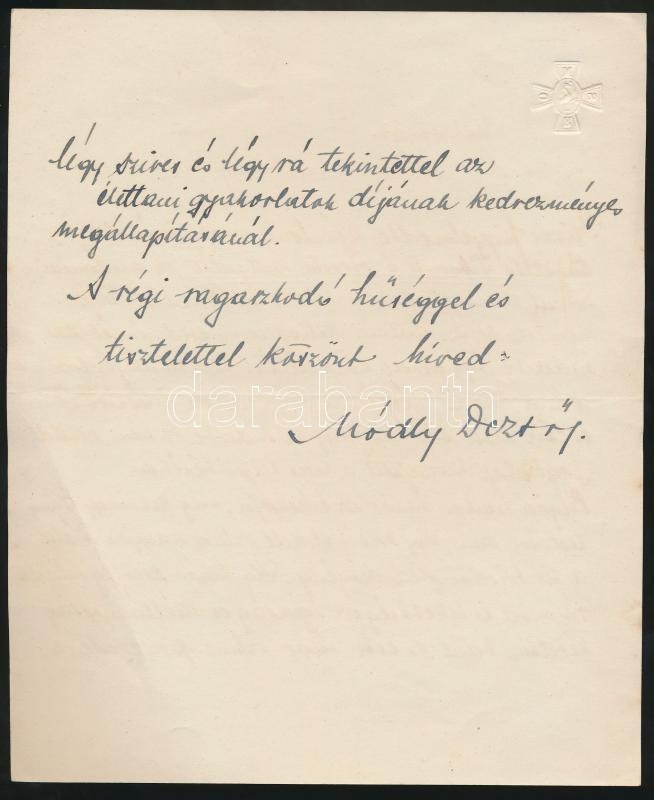 légy szives és légy rá tekintettel az
élettani gyakorlatok díjának kedvezményes
megállapításánál.
A régi ragaszkodó hűséggel és
tisztelettel köszönt híved:
darabanth
Módly Dezső.